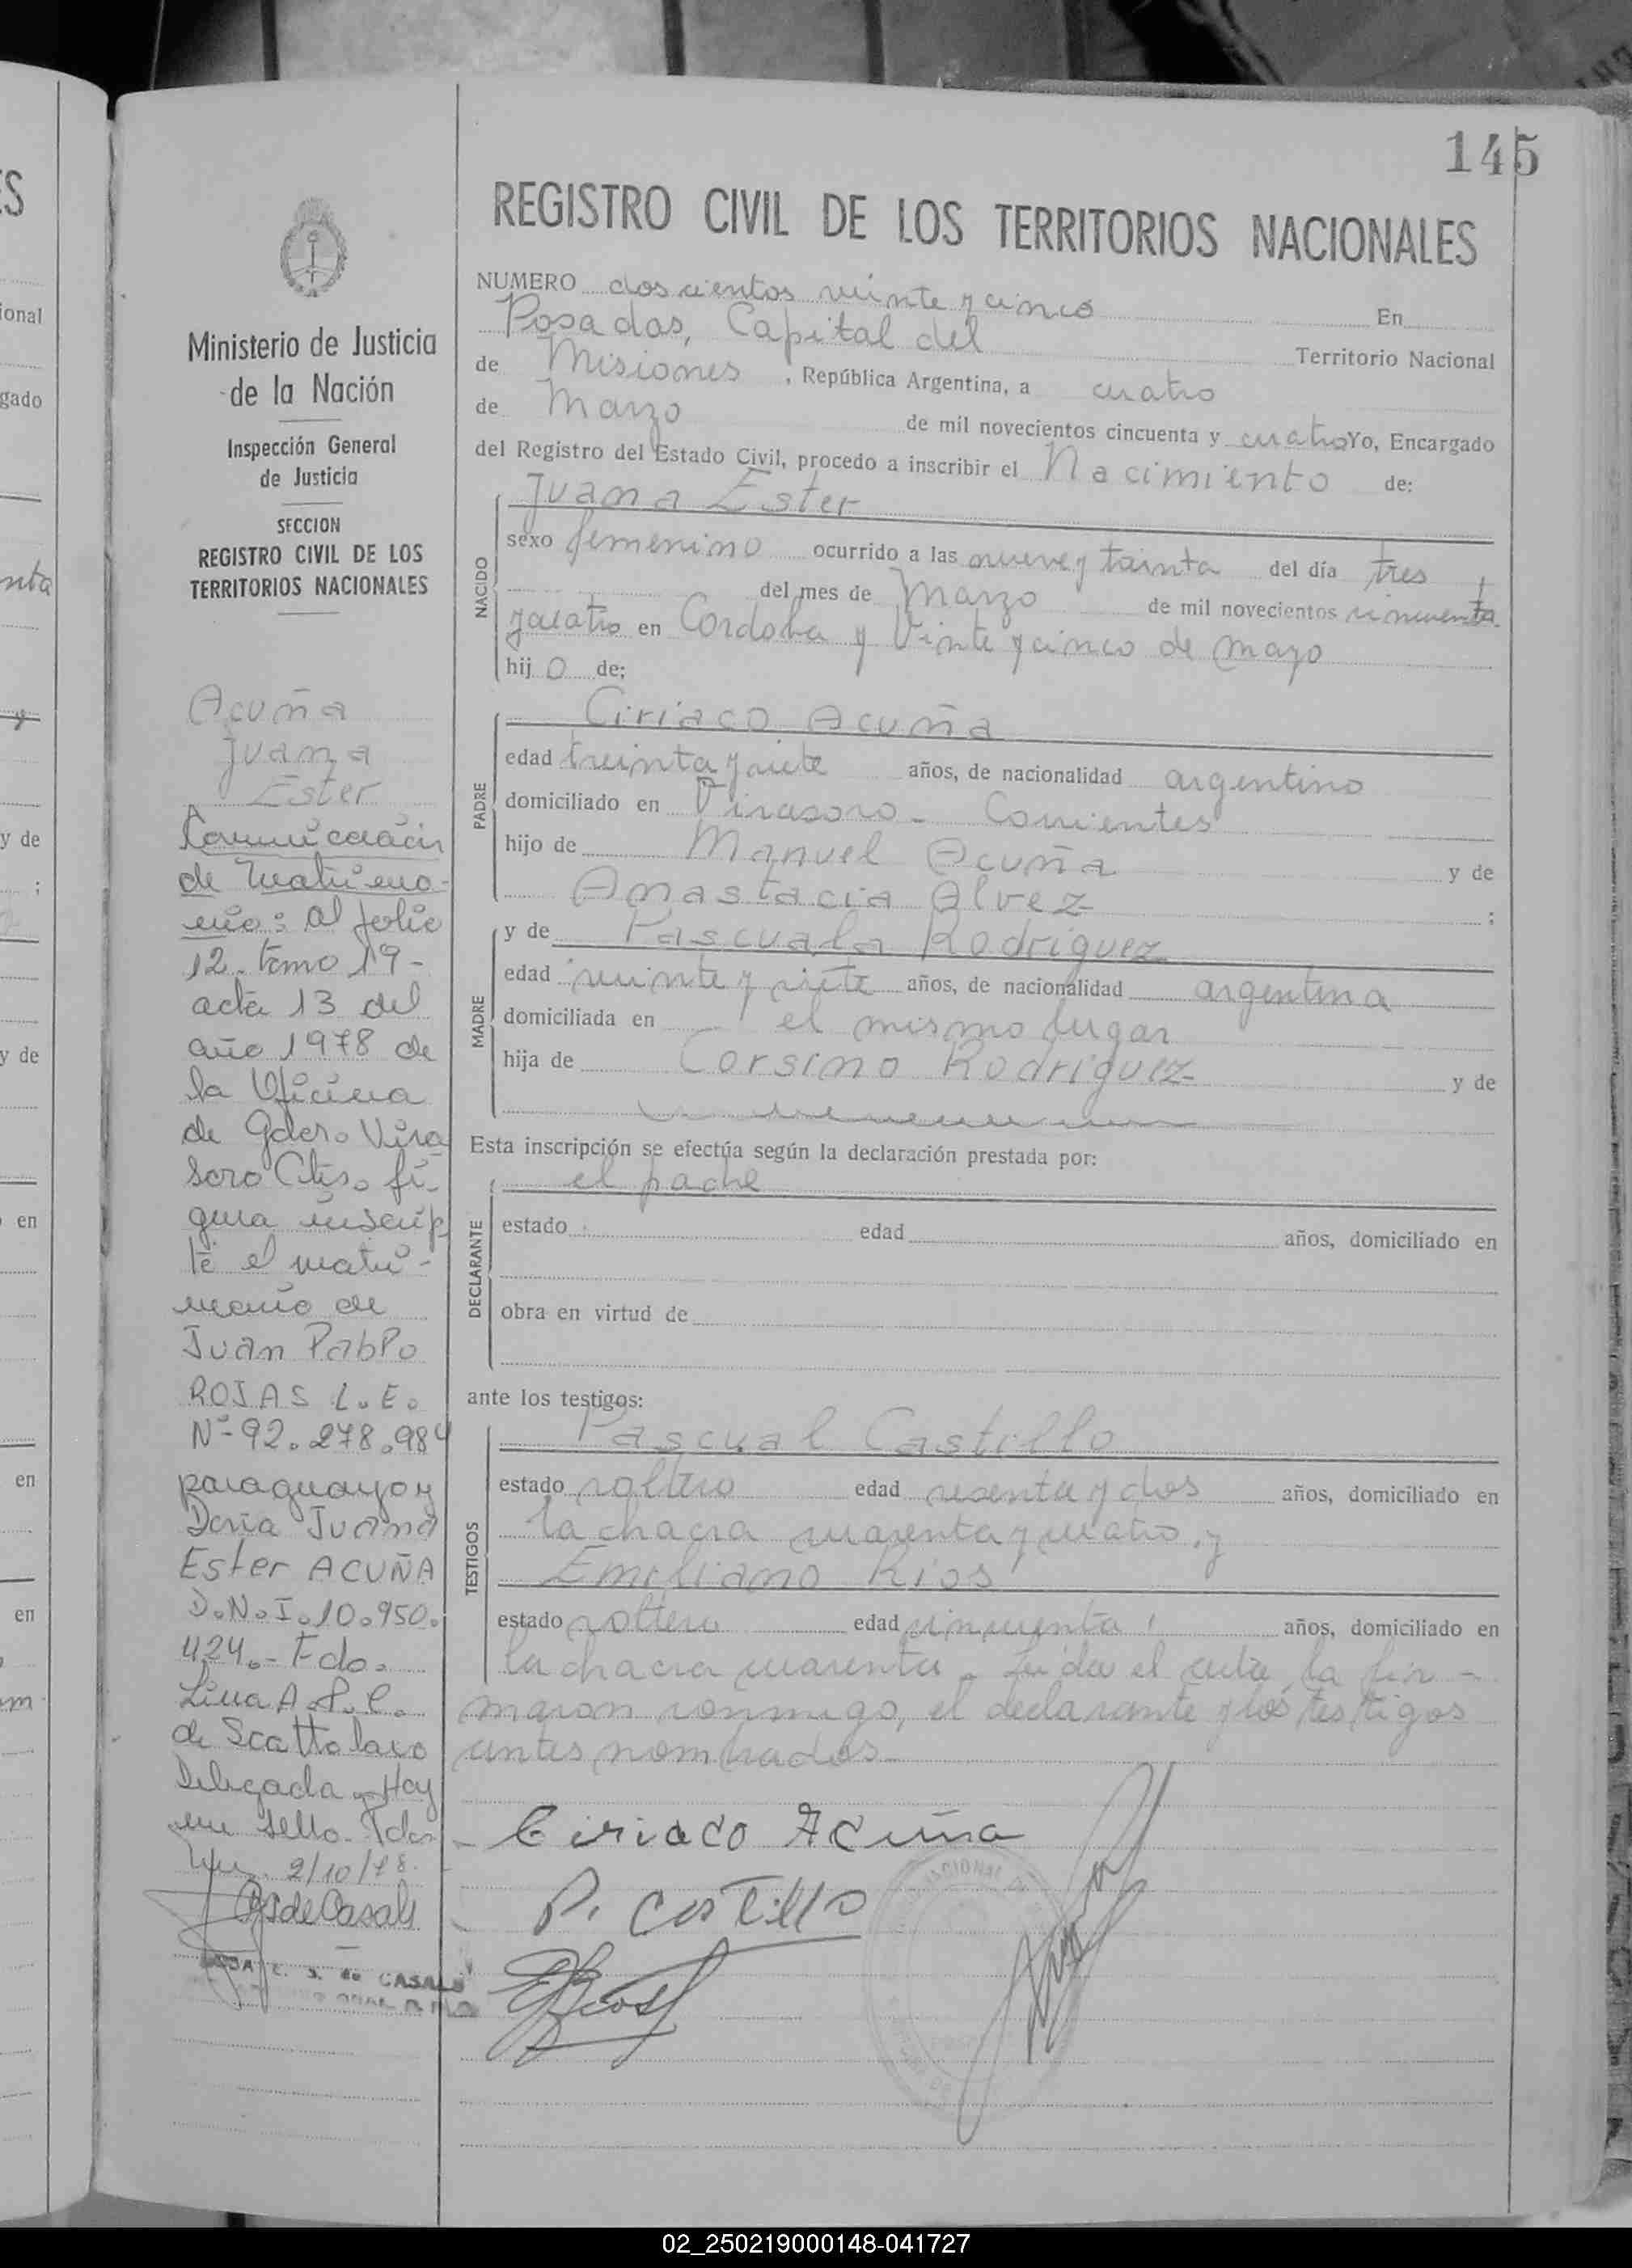 145
REGISTRO CIVIL DE LOS TERRITORIOS NACIONALES
NUMERO doscientos veinte y cinco En
Posadas, Capital del Territorio Nacional
de Misiones, República Argentina, a cuatro
de Marzo de mil novecientos cincuenta y cuatro Yo, Encargado
del Registro del Estado Civil, procedo a inscribir el Nacimiento de:
NACIDO
Juana Ester
sexo femenino ocurrido a las nueve y treinta del día tres
del mes de Marzo de mil novecientos cincuenta
y cuatro en Cordoba y Veinte y cinco de mayo
hij o de:
PADRE
Ciriaco Acuña
edad treinta y siete años, de nacionalidad argentino
domiciliado en Virasoro - Corrientes
hijo de Manuel Acuña y de
Anastacia Alvez ;
MADRE
y de Pascuala Rodriguez
edad veinte y siete años, de nacionalidad argentina
domiciliada en el mismo lugar
hija de Corsino Rodriguez y de
Esta inscripción se efectúa según la declaración prestada por:
DECLARANTE
el padre
estado edad años, domiciliado en
obra en virtud de
ante los testigos:
TESTIGOS
Pascual Castillo
estado soltero edad sesenta y dos años, domiciliado en
la chacra cuarenta y cuatro, y
Emiliano Rios
estado soltero edad cincuenta años, domiciliado en
la chacra cuarenta. Leida el acta, la fir-
maron conmigo, el declarante y los testigos
antes nombrados
Ciriaco Acuña
P. Castillo
ERios
Ministerio de Justicia
de la Nación
Inspección General
de Justicia
SECCION
REGISTRO CIVIL DE LOS
TERRITORIOS NACIONALES
Acuña
Juana
Ester
Comunicación
de Matrimo-
nio: al folio
12. tomo 19-
acta 13 del
año 1978 de
la Oficina
de Gdor. Vira
soro Ctes. fi-
gura inscrip
to el matri-
monio de
Juan Pablo
ROJAS L.E.
Nº 92.278.984
paraguayo y
Doña Juana
Ester ACUÑA
D.N.I. 10.950.
424.- Fdo.
Lina A.
de Scattolaro
Delegada. Hay
un sello.
2/10/78.
de Casals
de CASALS
ional
gado
y de
;
y de
en
en
en
02_250219000148-041727